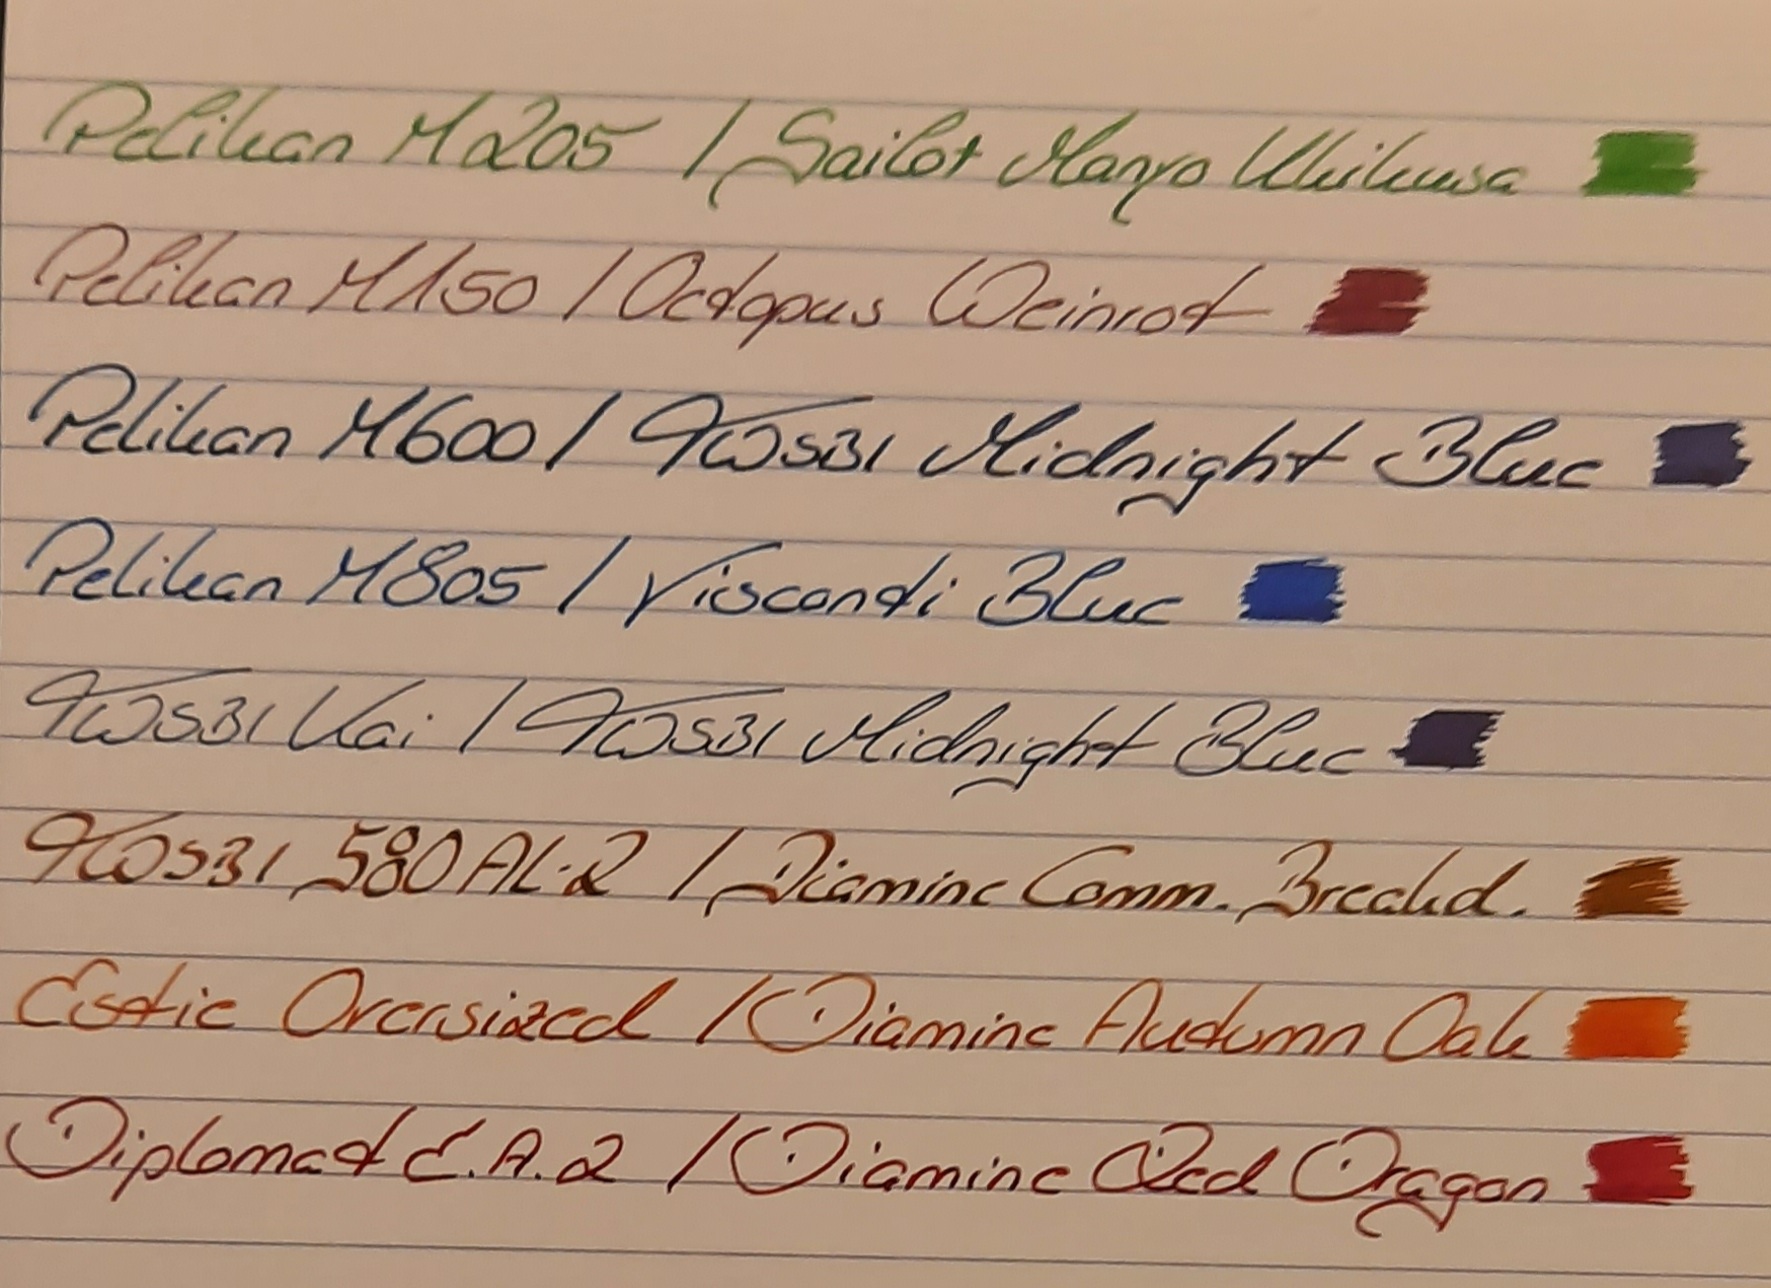 Pelikan M205 / Sailor Manyo Ukikusa
Pelikan M150 / Octopus Weinrot
Pelikan M600 / TWSBI Midnight Blue
Pelikan M805 / Visconti Blue
TWSBI Kai / TWSBI Midnight Blue
TWSBI 580 AL-R / Diamine Comm. Breakd.
Estie Oversized / Diamine Autumn Oak
Diplomat E.A.2 / Diamine Red Dragon